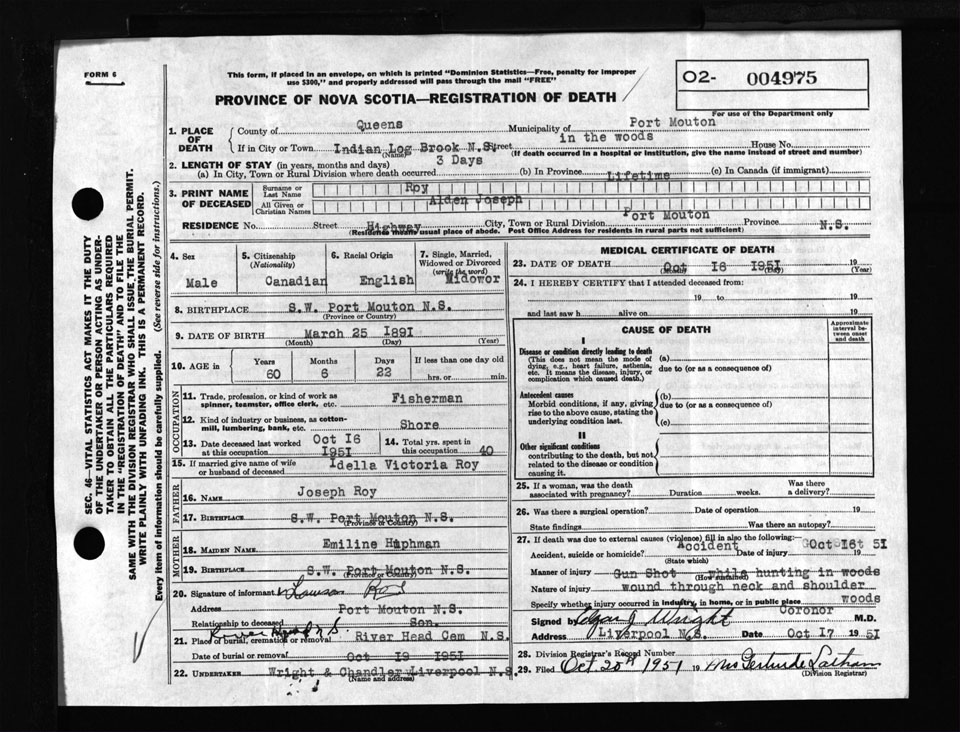 FORM 6
This form, if placed in an envelope, on which is printed "Dominion Statistics—Free, penalty for improper
use $300," and properly addressed will pass through the mail "FREE"
O2- 004975
For use of the Department only
PROVINCE OF NOVA SCOTIA—REGISTRATION OF DEATH
1. PLACE OF DEATH
County of Queens Municipality of Port Mouton
If in City or Town Indian Log Brook N.S. Street in the woods House No.
(Name) (If death occurred in a hospital or institution, give the name instead of street and number)
2. LENGTH OF STAY (in years, months and days)
(a) In City, Town or Rural Division where death occurred 3 Days (b) In Province Lifetime (c) In Canada (if immigrant)
3. PRINT NAME OF DECEASED
Surname or Last Name Roy
All Given or Christian Names Alden Joseph
RESIDENCE No. Street Highway City, Town or Rural Division Port Mouton Province N.S.
(Residence means usual place of abode. Post Office Address for residents in rural parts not sufficient)
4. Sex Male
5. Citizenship (Nationality) Canadian
6. Racial Origin English
7. Single, Married, Widowed or Divorced (write the word) Widowor
8. BIRTHPLACE S.W. Port Mouton N.S.
(Province or Country)
9. DATE OF BIRTH March 25 I89I
(Month) (Day) (Year)
10. AGE in Years 60 Months 6 Days 22 If less than one day old hrs. or min.
OCCUPATION
11. Trade, profession, or kind of work as spinner, teamster, office clerk, etc. Fisherman
12. Kind of industry or business, as cotton-mill, lumbering, bank, etc. Shore
13. Date deceased last worked at this occupation Oct I6 I95I
14. Total yrs. spent in this occupation 40
15. If married give name of wife or husband of deceased Idella Victoria Roy
FATHER
16. NAME Joseph Roy
17. BIRTHPLACE S.W. Port Mouton N.S.
(Province or Country)
MOTHER
18. MAIDEN NAME Emiline
19. BIRTHPLACE S.W. Port Mouton N.S.
(Province or Country)
20. Signature of informant Lawson
Address Port Mouton N.S.
Relationship to deceased Son.
River Head N.S.
21. Place of burial, cremation or removal River Head Cem N.S.
Date of burial or removal Oct I9 I95I
22. UNDERTAKER Wright & Chandler Liverpool N.S.
(Name and address)
MEDICAL CERTIFICATE OF DEATH
23. DATE OF DEATH Oct I6 I95I 19
(Month) (Day)
24. I HEREBY CERTIFY that I attended deceased from:
19 to 19
and last saw h alive on 19
CAUSE OF DEATH
Approximate interval between onset and death
I
Disease or condition directly leading to death (a)
(This does not mean the mode of dying, e.g., heart failure, asthenia, etc. It means the disease, injury, or complication which caused death.)
due to (or as a consequence of)
Antecedent causes (b)
Morbid conditions, if any, giving rise to the above cause, stating the underlying condition last.
due to (or as a consequence of)
(c)
II
Other significant conditions
contributing to the death, but not related to the disease or condition causing it.
25. If a woman, was the death associated with pregnancy? Duration weeks. Was there a delivery?
26. Was there a surgical operation? Date of operation 19
State findings Was there an autopsy?
27. If death was due to external causes (violence) fill in also the following:
Accident, suicide or homicide? Accident Date of injury 19 5I
(State which)
Manner of injury Gun Shot while hunting in woods
(How sustained)
Nature of injury wound through neck and shoulder
Specify whether injury occurred in industry, in home, or in public place woods
Signed by Edgar J Wright Coronor M.D.
Address Liverpool N.S. Date Oct I7 19 5I
28. Division Registrar's Record Number
29. Filed Oct 20th 1951 19 Mrs Gertrude Latham
(Division Registrar)
SEC. 46—VITAL STATISTICS ACT MAKES IT THE DUTY
OF THE UNDERTAKER OR PERSON ACTING AS UNDER-
TAKER TO OBTAIN ALL THE PARTICULARS REQUIRED
IN THE "REGISTRATION OF DEATH" AND TO FILE THE
SAME WITH THE DIVISION REGISTRAR WHO SHALL ISSUE THE BURIAL PERMIT.
WRITE PLAINLY WITH UNFADING INK. THIS IS A PERMANENT RECORD.
Every item of information should be carefully supplied. (See reverse side for instructions.)